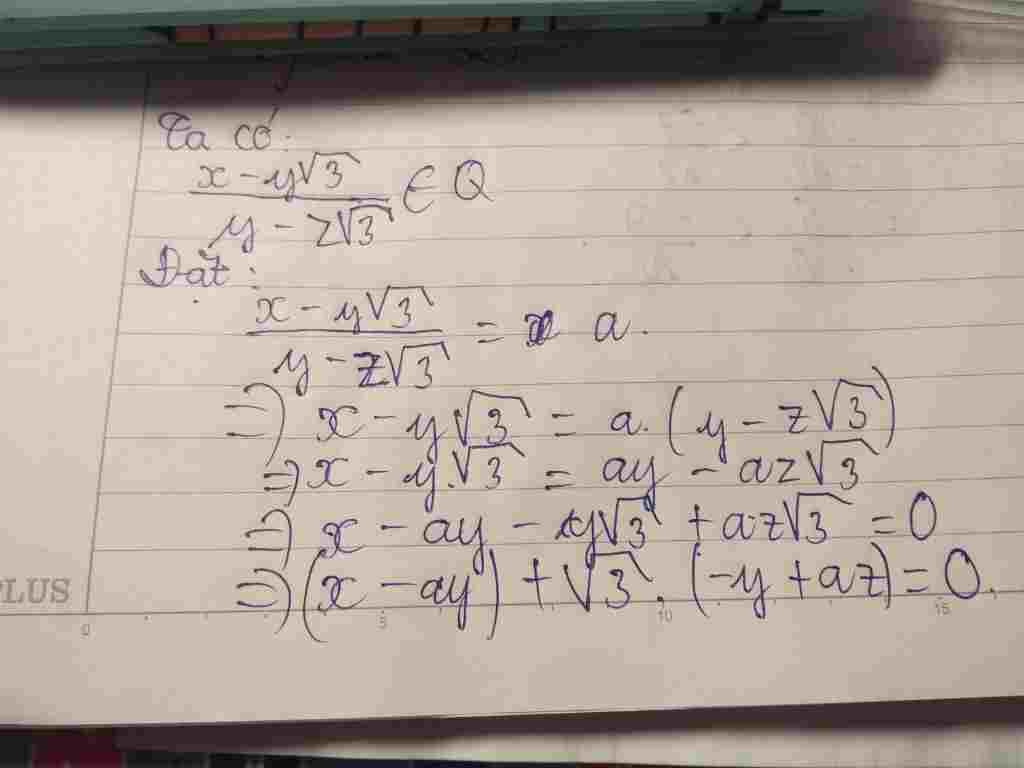 Ta có:
x - y√3 / y - z√3 ∈ Q
Đặt:
x - y√3 / y - z√3 = a.
=> x - y√3 = a. (y - z√3)
=> x - y.√3 = ay - az√3
=> x - ay - y√3 + az√3 = 0
=> (x - ay) + √3. (-y + az) = 0.
PLUS
0 5 10 15